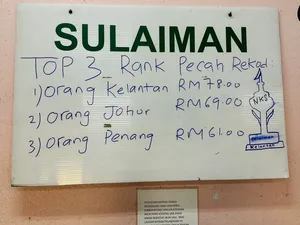 SULAIMAN
TOP 3 Rank Pecah Rekod:
1) Orang Kelantan RM 78.00
2) Orang Johor RM 69.00
3) Orang Penang RM 61.00
NKS
Kelantan